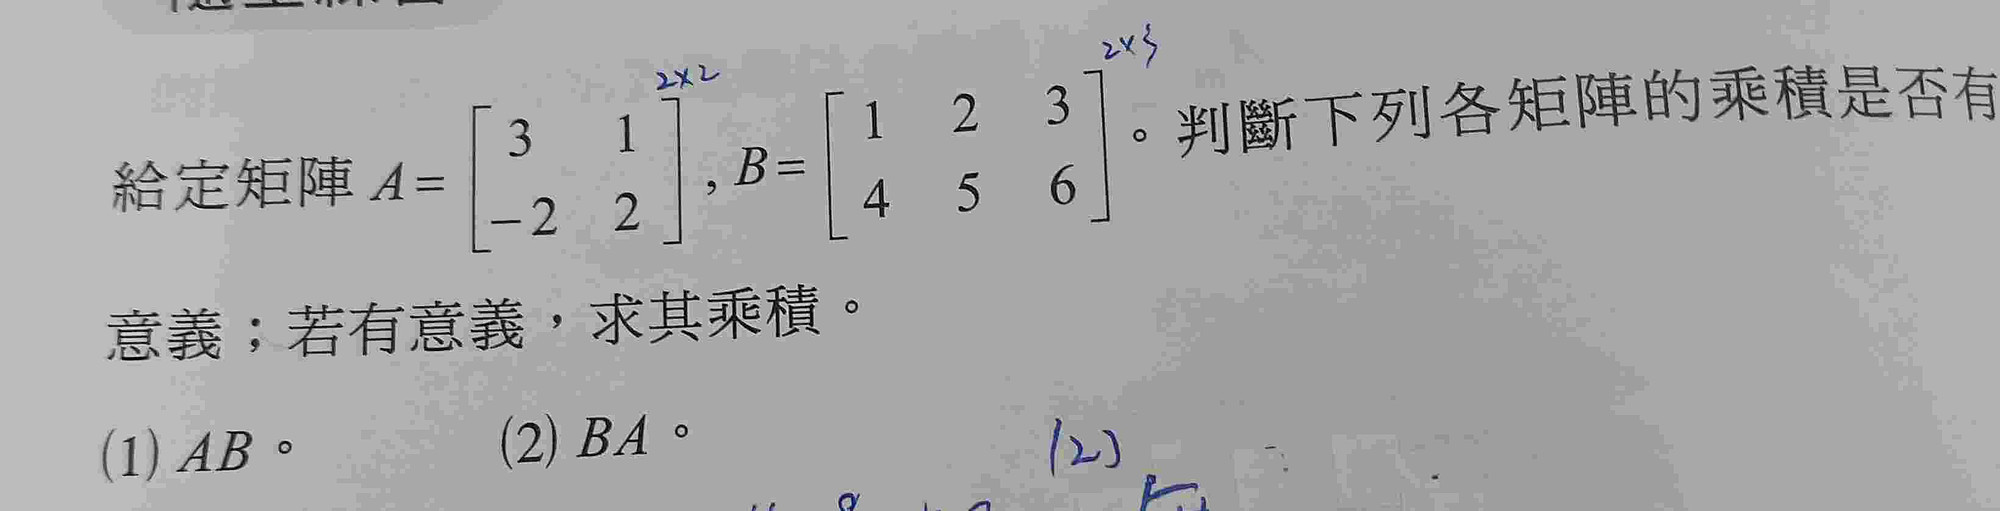 2×2
2×3
給定矩陣 A= [3 1 -2 2] , B= [1 2 3 4 5 6]。判斷下列各矩陣的乘積是否有
意義；若有意義，求其乘積。
(1) AB。 (2) BA。
(2)